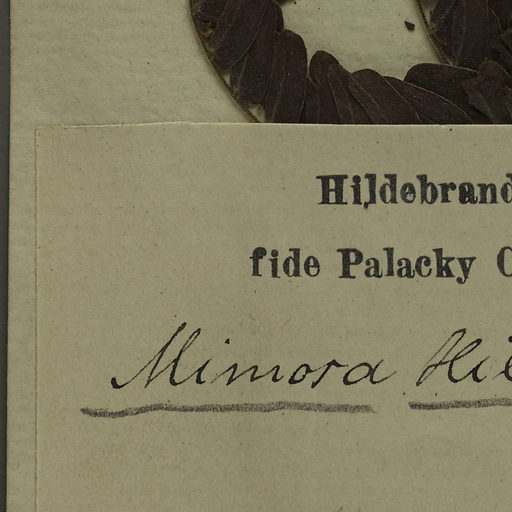 Hildebrand
fide Palacky C
Mimosa Hil